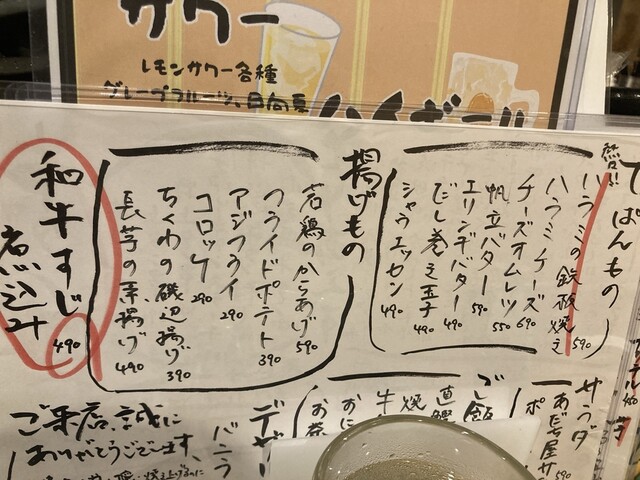 サワー
レモンサワー各種
グレープフルーツ、日向夏
ハイボール
熱々!!
てっぱんもの
ハラミの鉄板焼き 590
ハラミチーズ 690
チーズオムレツ 550
帆立バター 590
エリンギバター 490
だし巻き玉子 490
シャウエッセン 490
揚げもの
若鶏のからあげ 590
フライドポテト 390
アジフライ 290
コロッケ 290
ちくわの磯辺揚げ 390
長芋の素揚げ 490
和牛すじ
煮込み
490
サラダ
ご飯
ご来店、誠に
ありがとうございます、
バニラ